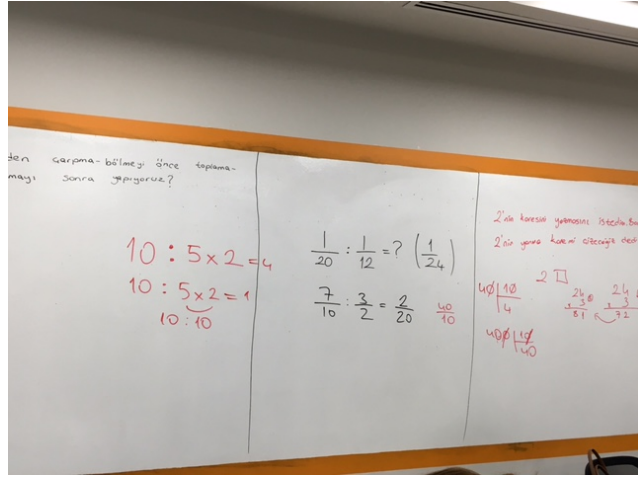 den çarpma-bölmeyi önce toplama-
mayı sonra yapıyoruz?
10 : 5 x 2 = 4
10 : 5 x 2 = 1
10 : 10
1/20 : 1/12 = ? (1/24)
7/10 : 3/2 = 2/20
40/10
2'nin karesini yazmasını istedim. Ba
2'nin yanına kare mi çizeceğiz ded
2 □
40 | 10
4
400 | 10
40
24
x 3
81
24
x 3
72